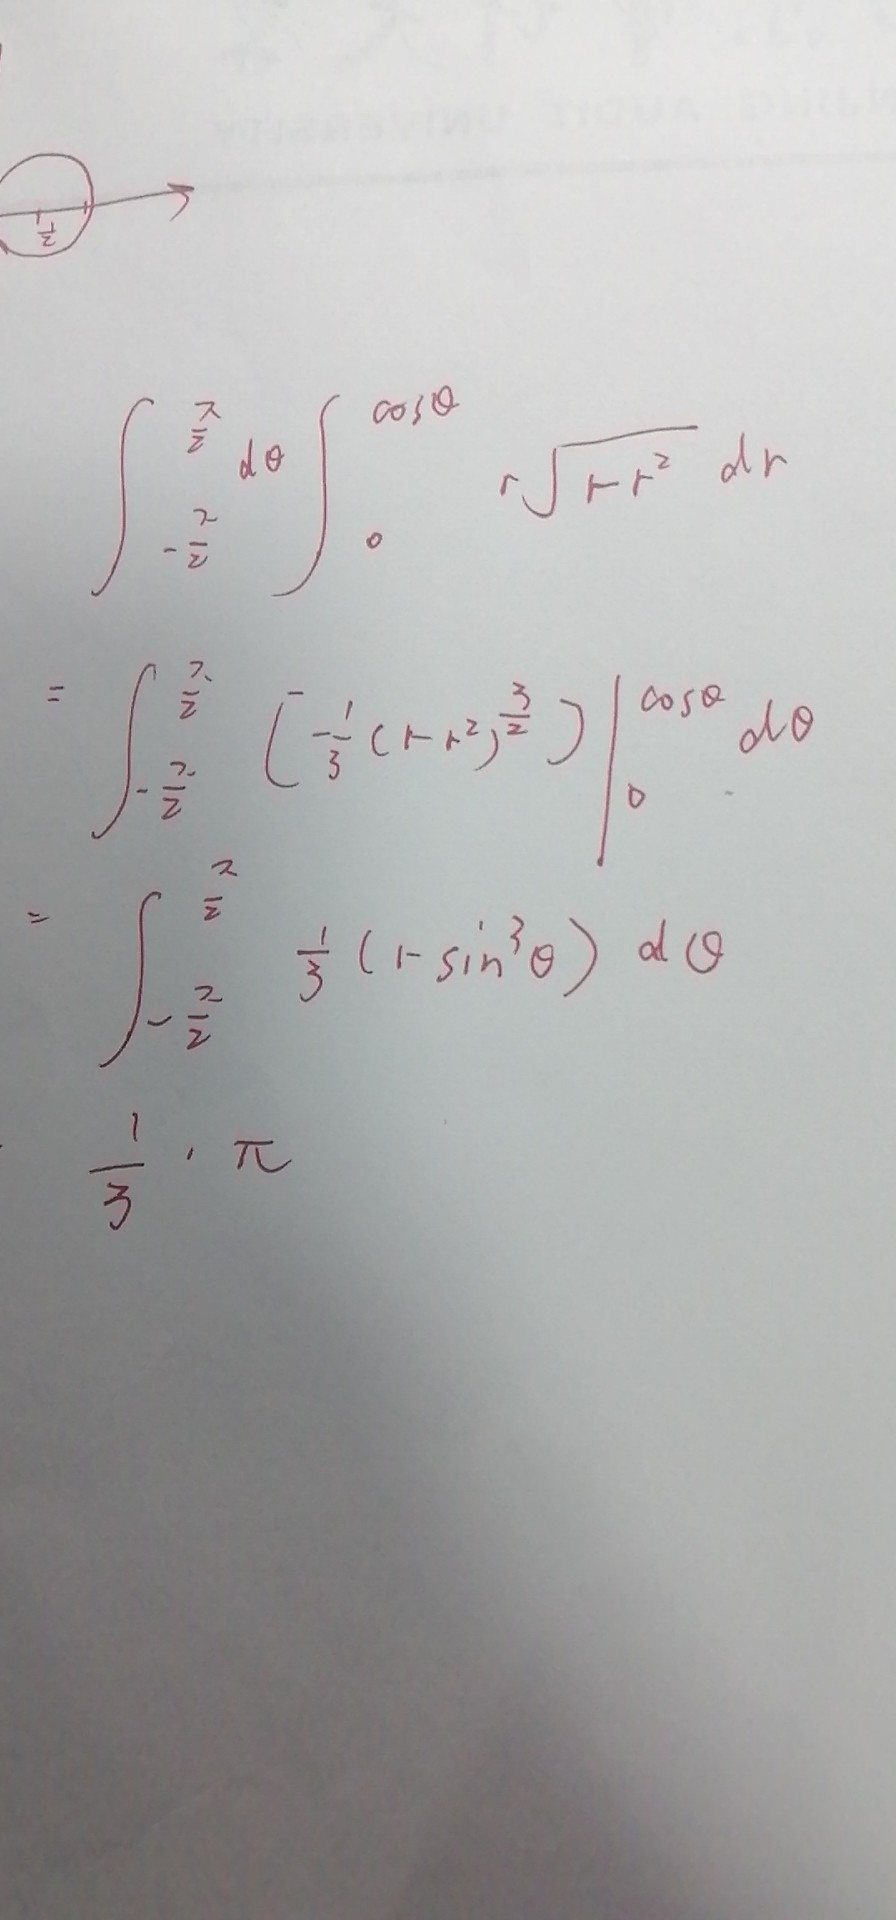 1/2
∫_{-π/2}^{π/2} dθ ∫_0^{cosθ} r√(1-r²) dr
= ∫_{-π/2}^{π/2} (-1/3 (1-r²)^{3/2}) |_0^{cosθ} dθ
= ∫_{-π/2}^{π/2} 1/3 (1-sin³θ) dθ
1/3 · π